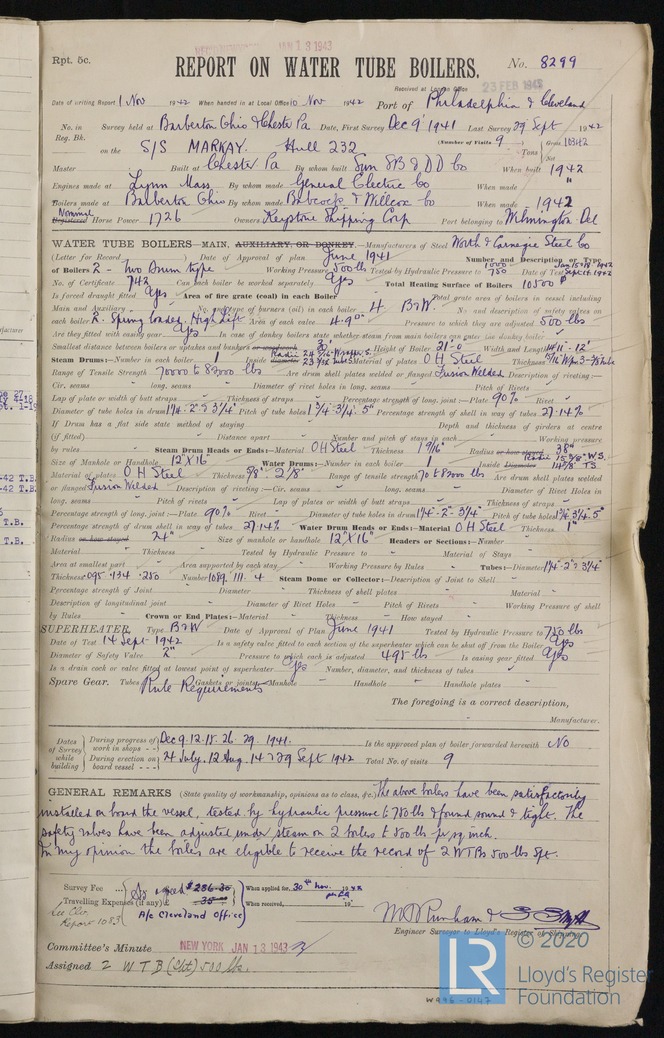 JAN 13 1943
Rpt. 5c.
REPORT ON WATER TUBE BOILERS.
No. 8299
Received at London Office
23 FEB 1943
Date of writing Report 1 Nov 1942 When handed in at Local Office 10 Nov 1942 Port of Philadelphia & Cleveland
No. in Reg. Bk. Survey held at Barberton Ohio & Chester Pa Date, First Survey Dec 9 1941 Last Survey 29 Sept 1942
(Number of Visits 9)
on the S/S MARKAY. Hull 232 Tons Gross 10342 Net
Master Built at Chester Pa By whom built Sun SB & DD Co When built 1942
Engines made at Lynn Mass. By whom made General Electric Co When made "
Boilers made at Barberton Ohio By whom made Babcock & Willcox Co When made 1942
Nominal Registered Horse Power 1726 Owners Keystone Shipping Corp Port belonging to Wilmington Del
WATER TUBE BOILERS—MAIN, AUXILIARY, OR DONKEY.—Manufacturers of Steel Worth & Carnegie Steel Co
(Letter for Record ) Date of Approval of plan June 1941 Number and Description or Type
of Boilers 2 - Two Drum type Working Pressure 500 lbs Tested by Hydraulic Pressure to 1000 750 Date of Test
No. of Certificate 742 Can each boiler be worked separately Yes Total Heating Surface of Boilers 10500
Is forced draught fitted Yes Area of fire grate (coal) in each Boiler Total grate area of boilers in vessel including
Main and Auxiliary No. and type of burners (oil) in each boiler 4 B&W. No. and description of safety valves on
each boiler 2. Spring loaded. High Lift Area of each valve 4.90" Pressure to which they are adjusted 500 lbs
Are they fitted with easing gear Yes In case of donkey boilers state whether steam from main boilers can enter the donkey boiler
Smallest distance between boilers or uptakes and bunkers or woodwork Height of Boiler 21'-0 Width and Length 14'11" - 12'
Steam Drums:—Number in each boiler 1 Inside diameter Material of plates O H Steel Thickness
Range of Tensile Strength 70000 to 82000 lbs Are drum shell plates welded or flanged Fusion Welded Description of riveting:—
Cir. seams long. seams Diameter of rivet holes in long. seams Pitch of Rivets
Lap of plate or width of butt straps Thickness of straps Percentage strength of long. joint:—Plate 90% Rivet
Diameter of tube holes in drum 1 1/4 - 2" & 3 1/4" Pitch of tube holes Percentage strength of shell in way of tubes 27.14%
If Drum has a flat side state method of staying Depth and thickness of girders at centre
(if fitted) Distance apart Number and pitch of stays in each Working pressure
by rules Steam Drum Heads or Ends:—Material OH Steel Thickness 1 9/16" Radius or how stayed 38"
Size of Manhole or Handhole 12"X16" Water Drums:—Number in each boiler 1 Inside Diameter
Material of plates O H Steel Thickness 5/8" - 2 1/8" Range of tensile strength 70 to 82000 lbs Are drum shell plates welded
or flanged Fusion Welded Description of riveting:—Cir. seams long. seams Diameter of Rivet Holes in
long. seams Pitch of rivets Lap of plates or width of butt straps Thickness of straps
Percentage strength of long. joint:—Plate 90% Rivet Diameter of tube holes in drum 1 1/4 - 2" - 3 1/4" Pitch of tube holes
Percentage strength of drum shell in way of tubes 27.14% Water Drum Heads or Ends:—Material O H Steel Thickness 1"
Radius or how stayed 24" Size of manhole or handhole 12"X16" Headers or Sections:—Number
Material Thickness Tested by Hydraulic Pressure to Material of Stays
Area at smallest part Area supported by each stay Working Pressure by Rules Tubes:—Diameter 1 1/4 - 2" & 3 1/4"
Thickness .095 .134 .250 Number 1089. 111. 4 Steam Dome or Collector:—Description of Joint to Shell
Percentage strength of Joint Diameter Thickness of shell plates Material
Description of longitudinal joint Diameter of Rivet Holes Pitch of Rivets Working Pressure of shell
by Rules Crown or End Plates:—Material Thickness How stayed
SUPERHEATER. Type B&W Date of Approval of Plan June 1941 Tested by Hydraulic Pressure to 750 lbs
Date of Test 14 Sept 1942 Is a safety valve fitted to each section of the superheater which can be shut off from the Boiler Yes
Diameter of Safety Valve 2" Pressure to which each is adjusted 495 lbs Is easing gear fitted Yes
Is a drain cock or valve fitted at lowest point of superheater Yes Number, diameter, and thickness of tubes
Spare Gear. Tubes Gaskets or joints:—Manhole Handhole Handhole plates
Rule Requirements
The foregoing is a correct description,
Manufacturer.
Dates of Survey while building During progress of work in shops - - Dec 9. 12. 18. 26. 29. 1941. Is the approved plan of boiler forwarded herewith No
During erection on board vessel - - - 24 July, 12 Aug, 14 & 29 Sept 1942 Total No. of visits 9
GENERAL REMARKS (State quality of workmanship, opinions as to class, &c.) The above boilers have been satisfactorily
installed on board the vessel, tested by hydraulic pressure to 750 lbs & found sound & tight. The
safety valves have been adjusted under steam on 2 boilers to 500 lbs pr sq inch.
In my opinion the boilers are eligible to receive the record of 2 WTBs 500 lbs Spt.
Survey Fee ... $286.30 When applied for, 30th Nov. 1942
Travelling Expenses (if any) £ When received, 19
A/c Cleveland Office
See Clev. Report 1083
Engineer Surveyor to Lloyd's Register of Shipping
Committee's Minute NEW YORK JAN 13 1943
Assigned 2 W T B (Spt) 500 lbs.
LR © 2020
Lloyd's Register
Foundation
W996-0147